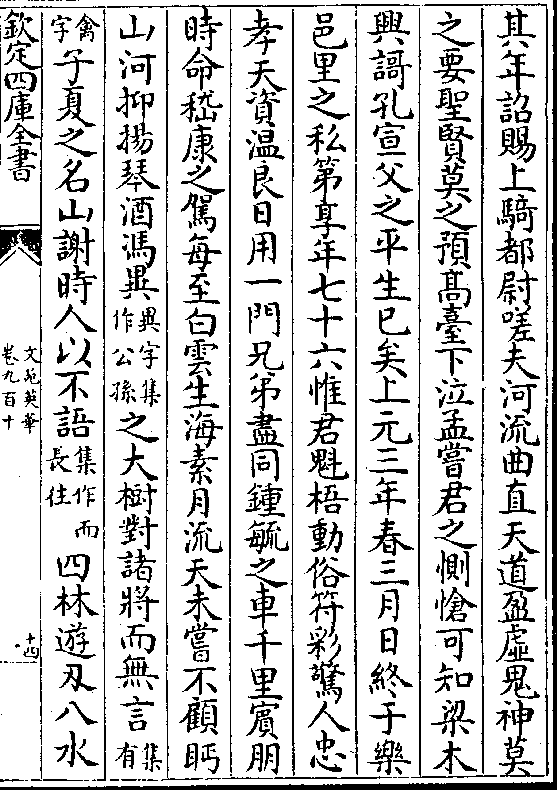 其年詔賜上騎都尉嗟夫河流曲直天道盈虛鬼神莫
之要聖賢莫之預髙臺下泣孟嘗君之惻愴可知梁木
興謌孔宣父之平生已矣上元三年春三月日終于樂
邑里之私第享年七十六惟君魁梧動俗符彩驚人忠
孝天資温良日用一門兄弟盡同鍾毓之車千里賓朋
時命嵇康之駕每至白雲生海素月流天未嘗不顧眄
山河抑揚琴酒馮異異字集作公孫之大樹對諸將而無言集有
禽字子夏之名山謝時人以不語集作而長往四林遊刃八水
欽定四庫全書
文苑英華
卷九百十
十四